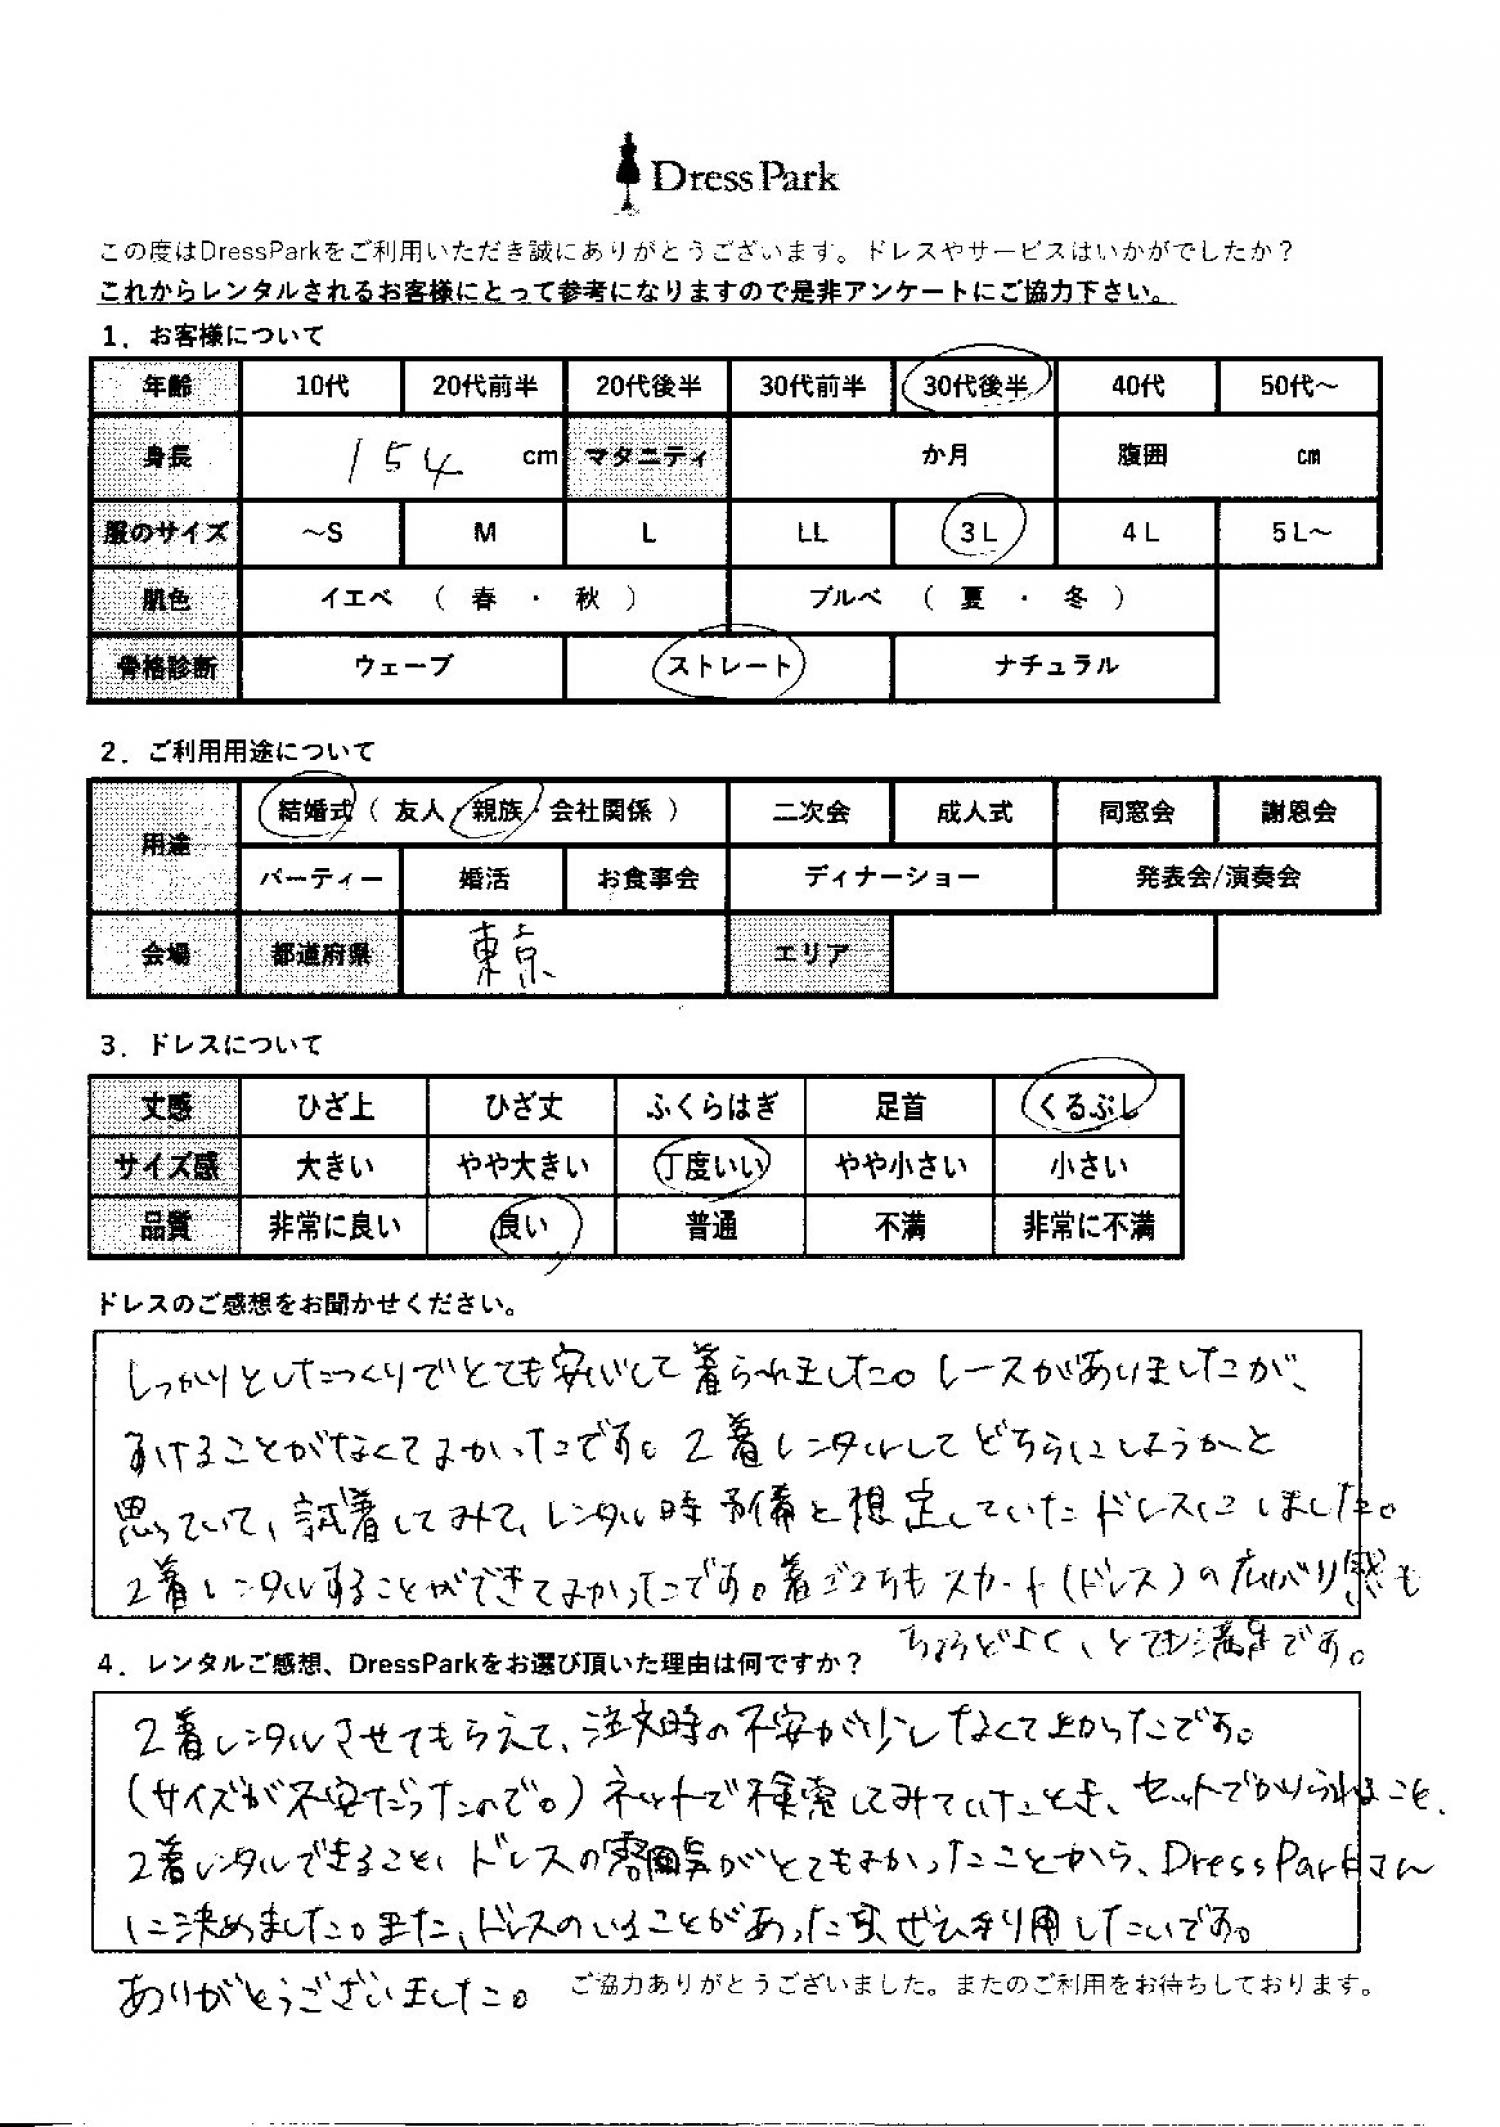 Dress Park
この度はDressParkをご利用いただき誠にありがとうございます。ドレスやサービスはいかがでしたか？
これからレンタルされるお客様にとって参考になりますので是非アンケートにご協力下さい。
1．お客様について
年齢 10代 20代前半 20代後半 30代前半 30代後半 40代 50代～
身長 154 cm マタニティ か月 腹囲 cm
服のサイズ ～S M L LL 3L 4L 5L～
肌色 イエベ （ 春 ・ 秋 ） ブルベ （ 夏 ・ 冬 ）
骨格診断 ウェーブ ストレート ナチュラル
2．ご利用用途について
用途 結婚式（ 友人・親族・会社関係 ） 二次会 成人式 同窓会 謝恩会
パーティー 婚活 お食事会 ディナーショー 発表会/演奏会
会場 都道府県 東京 エリア
3．ドレスについて
丈感 ひざ上 ひざ丈 ふくらはぎ 足首 くるぶし
サイズ感 大きい やや大きい 丁度いい やや小さい 小さい
品質 非常に良い 良い 普通 不満 非常に不満
ドレスのご感想をお聞かせください。
しっかりとしたつくりでとても安心して着られました。レースがありましたが、
ることがなくてよかったです。2着レンタルしてどちらにしようかと
思っていて、試着してみて、レンタル時予備と想定していたドレスにしました。
2着レンタルすることができてよかったです。着ごこちもスカート（ドレス）の広がり感も
ちょうどよく、とても満足です。
4．レンタルご感想、DressParkをお選び頂いた理由は何ですか？
2着レンタルさせてもらえて、注文時の不安が少しなくてよかったです。
（サイズが不安だったので。）ネットで検索してみていたとき、セットでかりられること、
2着レンタルできること、ドレスの雰囲気がとてもよかったことから、DressParkさん
に決めました。また、ドレスのいることがあった、ぜひ利用したいです。
ありがとうございました。
ご協力ありがとうございました。またのご利用をお待ちしております。